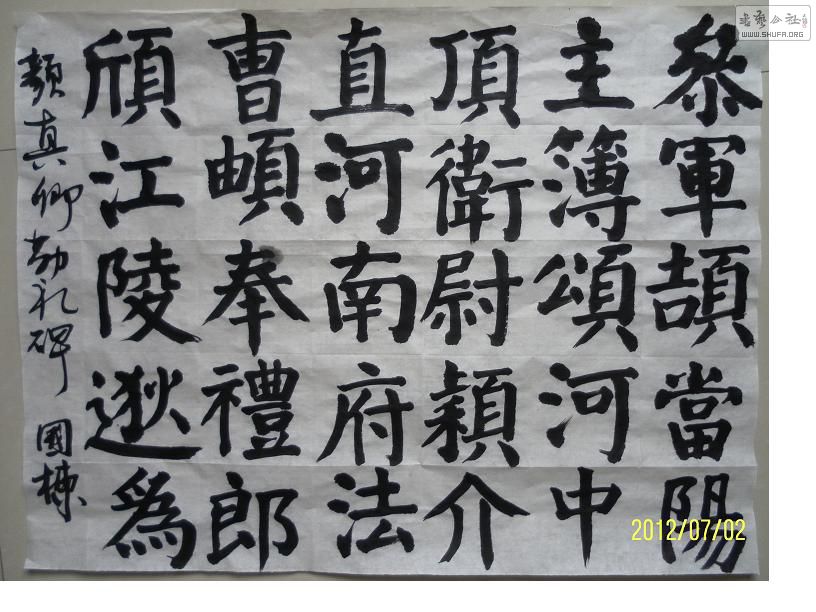 叅軍頡當陽
主簿頌河中
頂衛尉穎介
直河南府法
曹頔奉禮郎
頎江陵逖為
顏真卿勤礼碑 國棟
2012/07/02
书艺公社
WWW.SHUFA.ORG